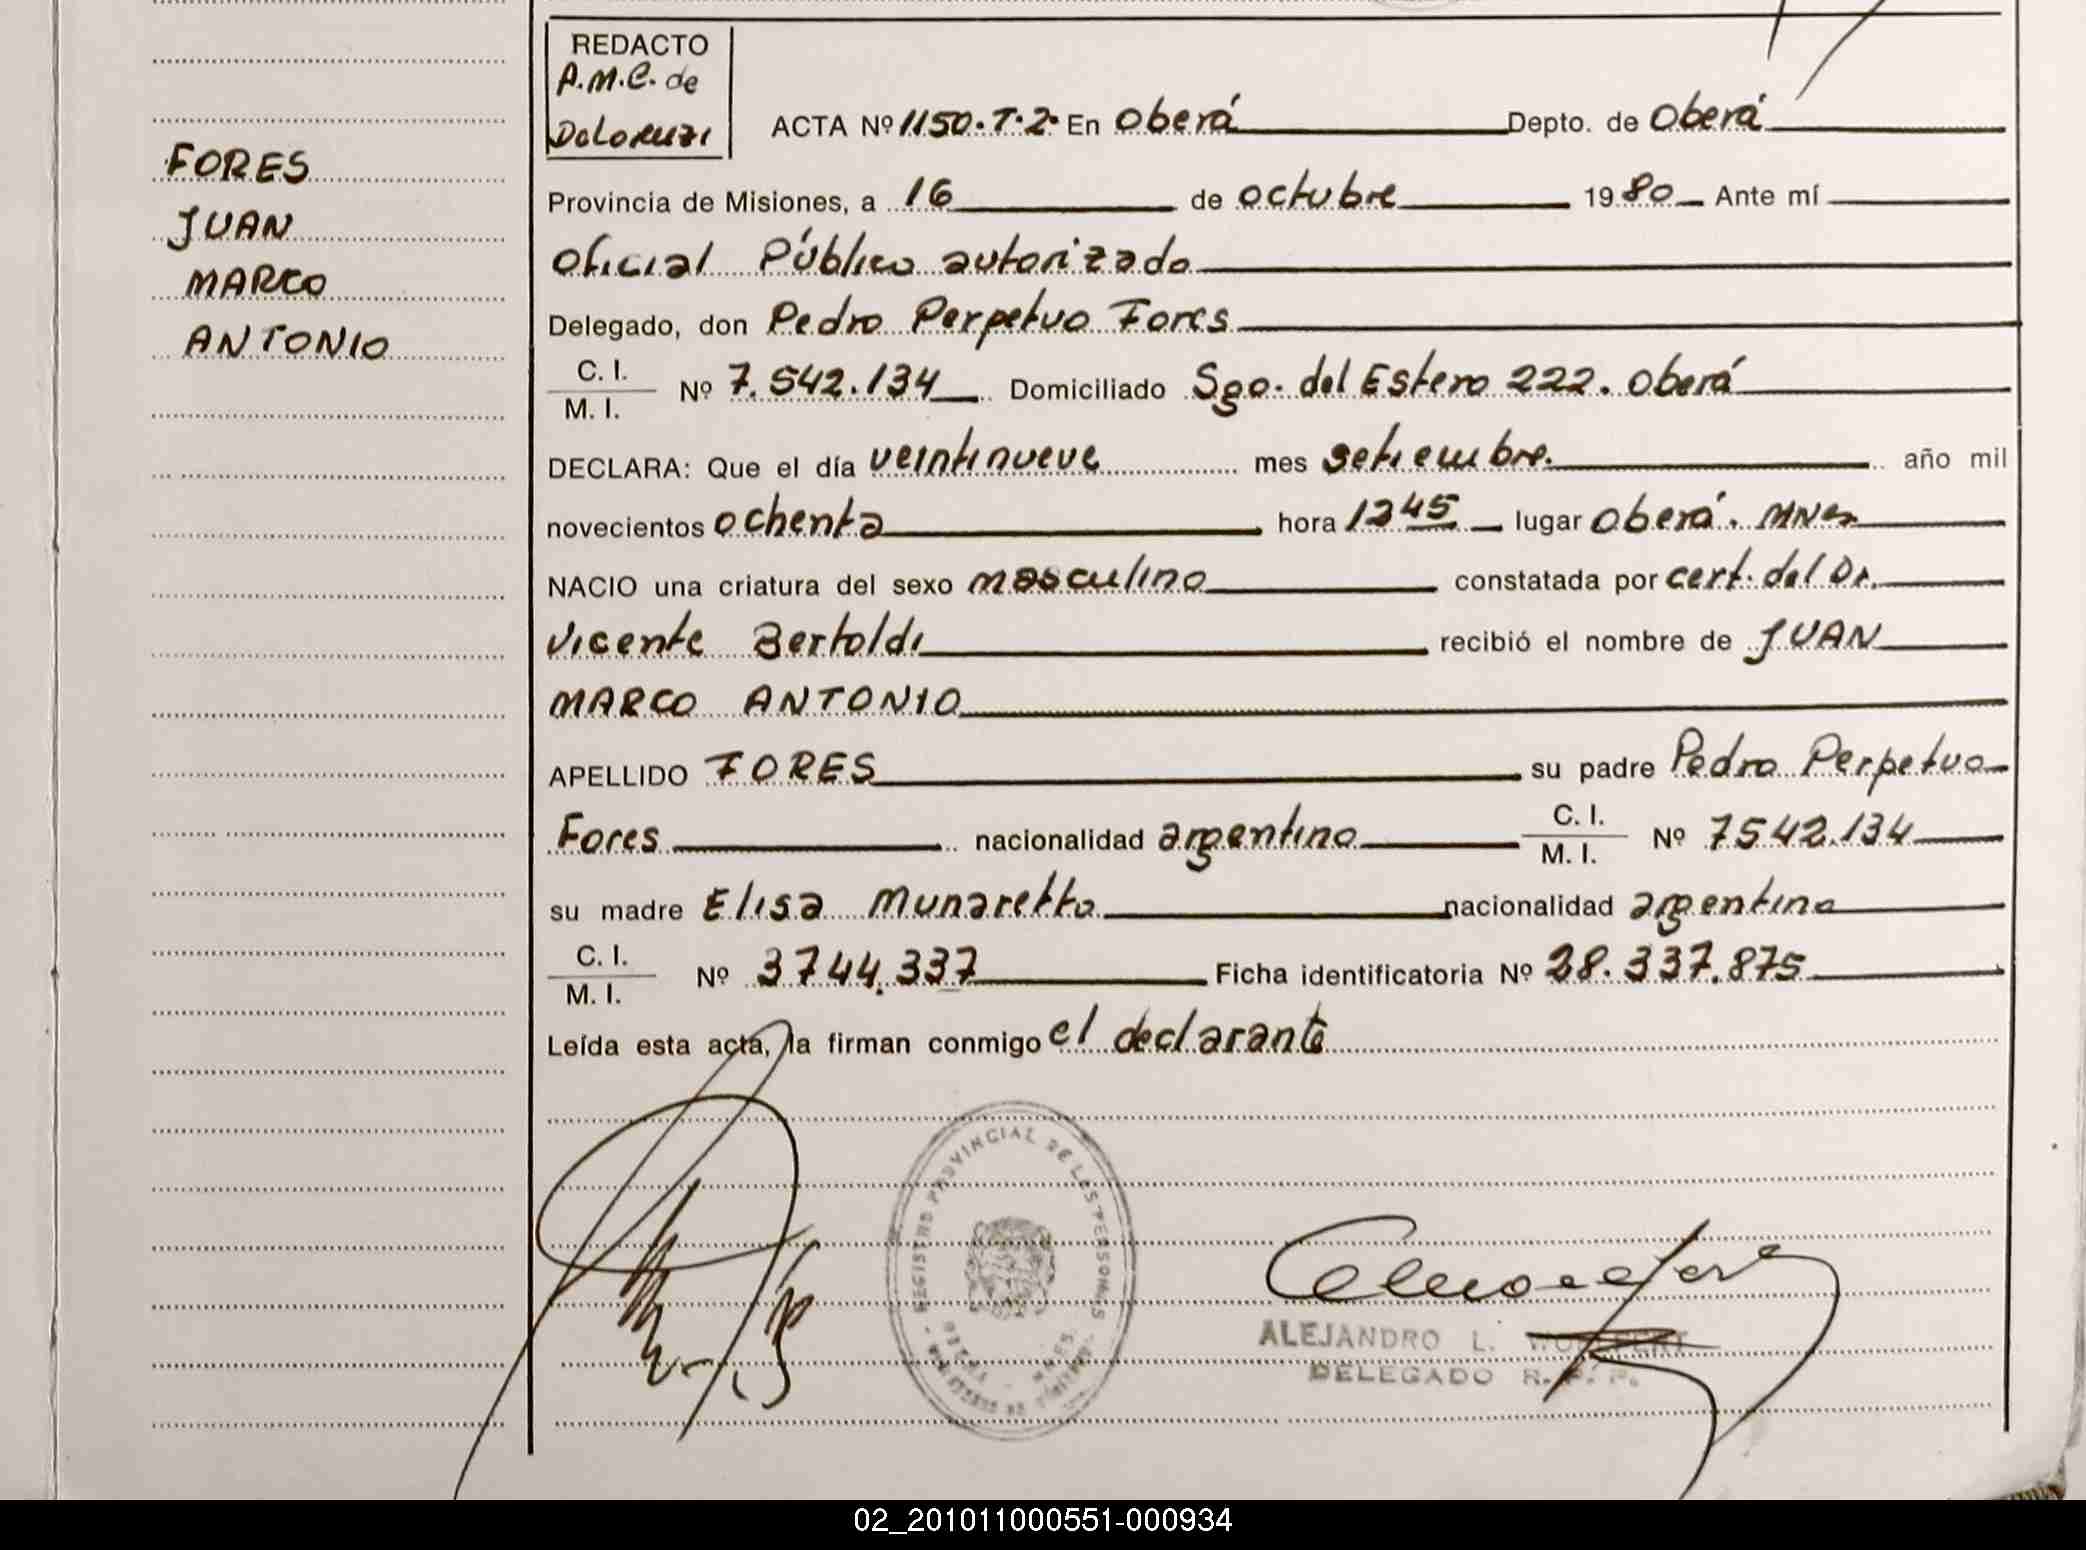 REDACTO
A.M.C. de
ACTA Nº 1150.T.2. En Oberá Depto. de Oberá
FORES
JUAN
MARCO
ANTONIO
Provincia de Misiones, a 16 de octubre 1980 Ante mí
Oficial Público autorizado
Delegado, don Pedro Perpetuo Fores
C. I.
M. I. Nº 7.542.134 Domiciliado Sgo. del Estero 222. Oberá
DECLARA: Que el día veintinueve mes setiembre. año mil
novecientos ochenta hora 1245 lugar Oberá. Mnes
NACIO una criatura del sexo masculino constatada por cert. del Dr.
Vicente Bertoldi recibió el nombre de JUAN
MARCO ANTONIO
APELLIDO FORES su padre Pedro Perpetuo
Fores nacionalidad argentino C. I.
M. I. Nº 7542.134
su madre Elisa Munaretto nacionalidad argentina
C. I.
M. I. Nº 3744.337 Ficha identificatoria Nº 28.337.875
Leída esta acta, la firman conmigo el declarante
REGISTRO PROVINCIAL DE LAS PERSONAS
ALEJANDRO L.
DELEGADO R. P. P.
02_201011000551-000934